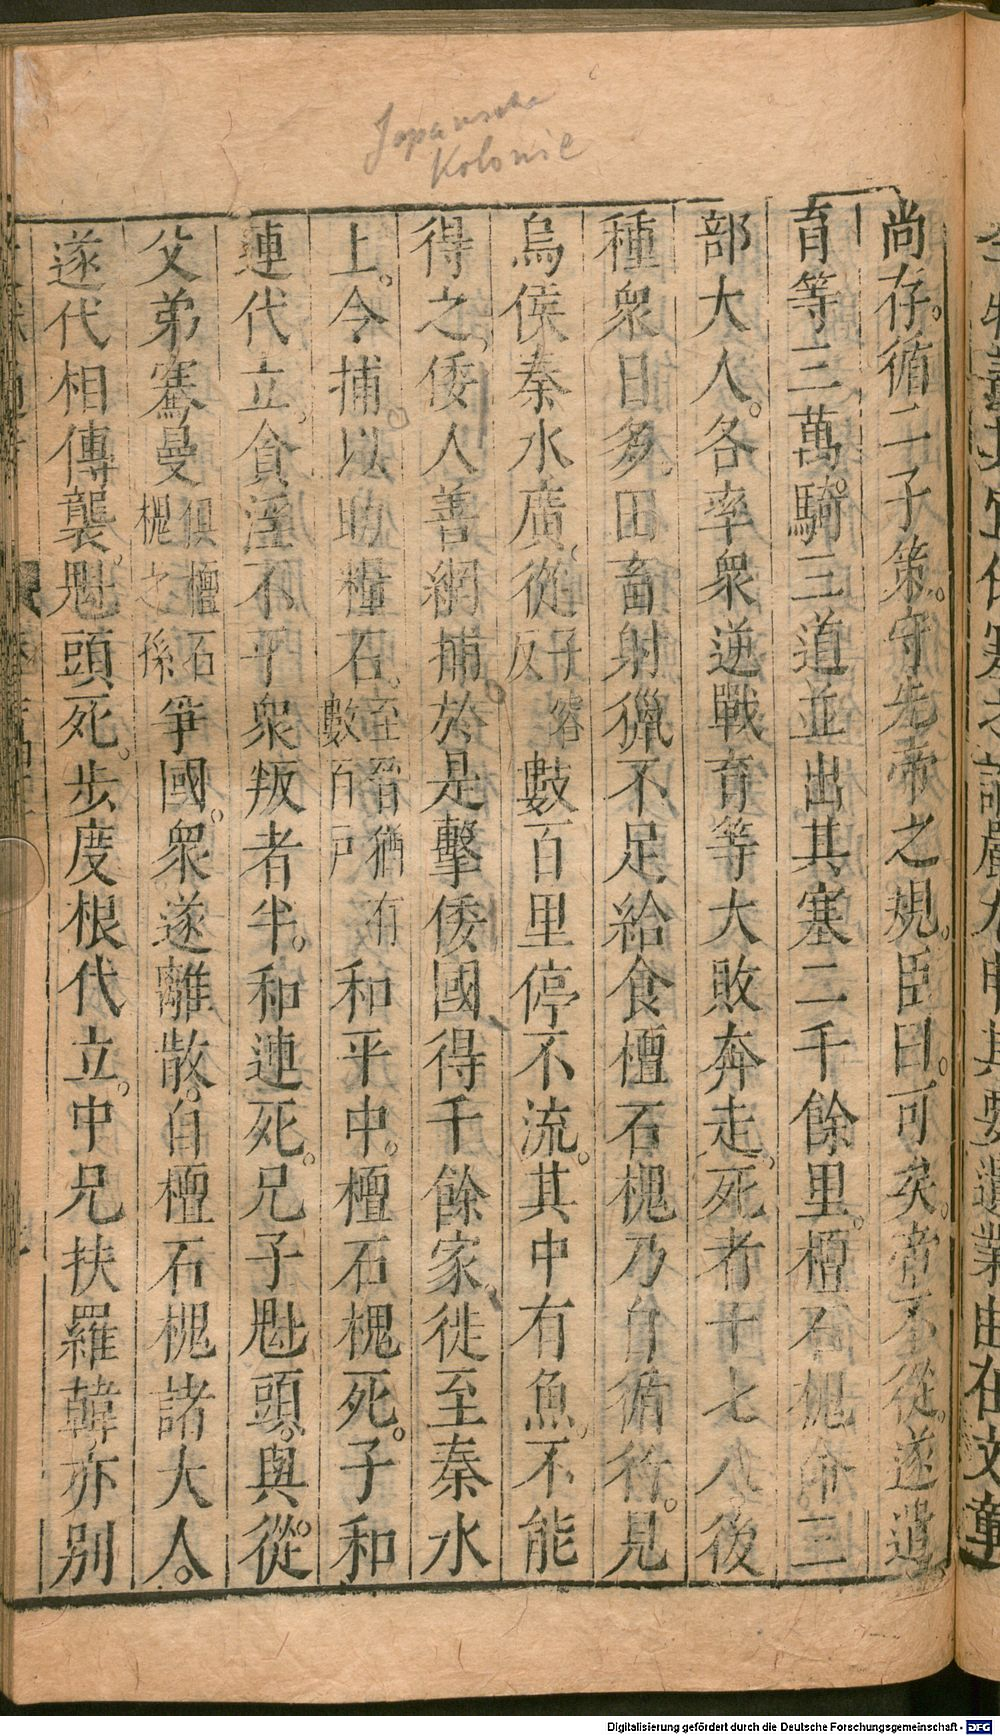 Japanische
Kolonie
尚存。循二子策。守先帝之規。臣曰。可矣。帝不從。遂遣
育等三萬騎三道並出其塞二千餘里。檀石槐命三
部大人。各率衆逆戰育等大敗奔走。死者十七八。後
種衆日多。田畜射獵不足給食檀石槐乃自循行。見
烏侯秦水廣。從子容反數百里停不流。其中有魚。不能
得之。倭人善網捕。於是擊倭國得千餘家。徙至秦水
上。今捕以助糧石。至晉猶有數百戶和平中。檀石槐死。子和
連代立。貪淫不平衆叛者半。和連死。兄子魁頭。與從
父弟騫曼俱檀石槐之孫爭國。衆遂離散。自檀石槐諸大人。
遂代相傳襲。魁頭死。步度根代立。中兄扶羅韓。亦別
Digitalisierung gefördert durch die Deutsche Forschungsgemeinschaft - DFG